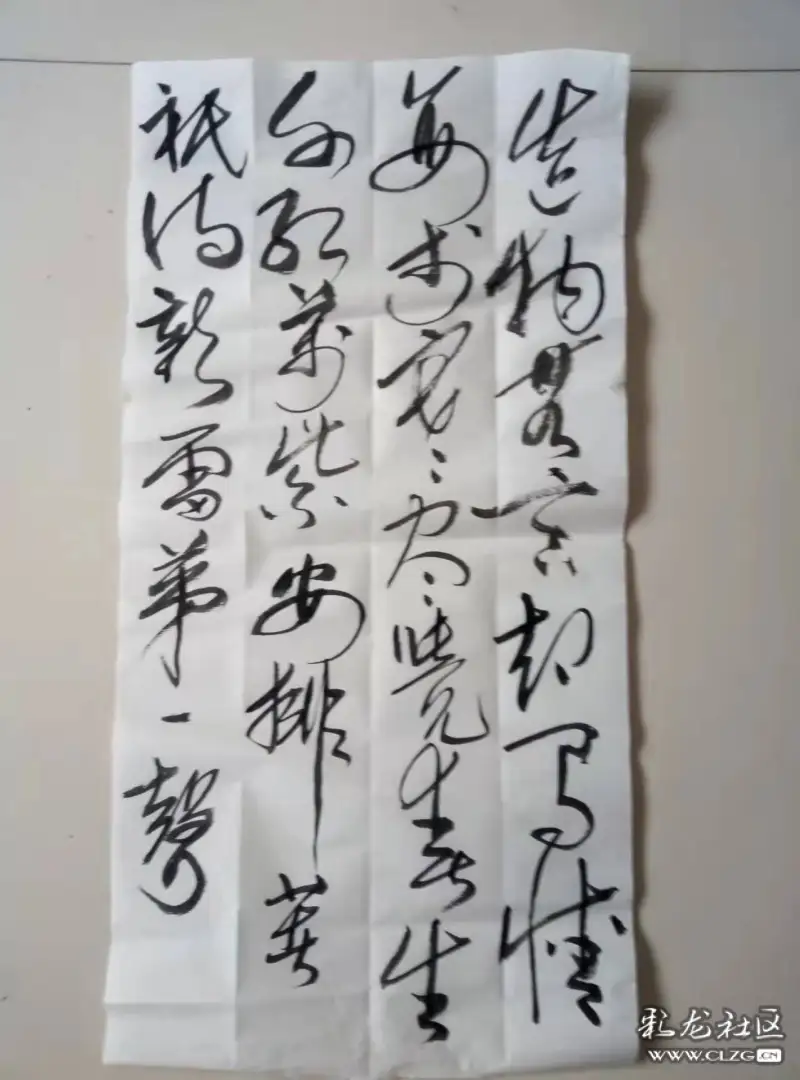 造物無言却有情
每於寒尽覺春生
千紅萬紫安排著
祇待新雷第一聲
彩龙社区
WWW.CLZG.CN